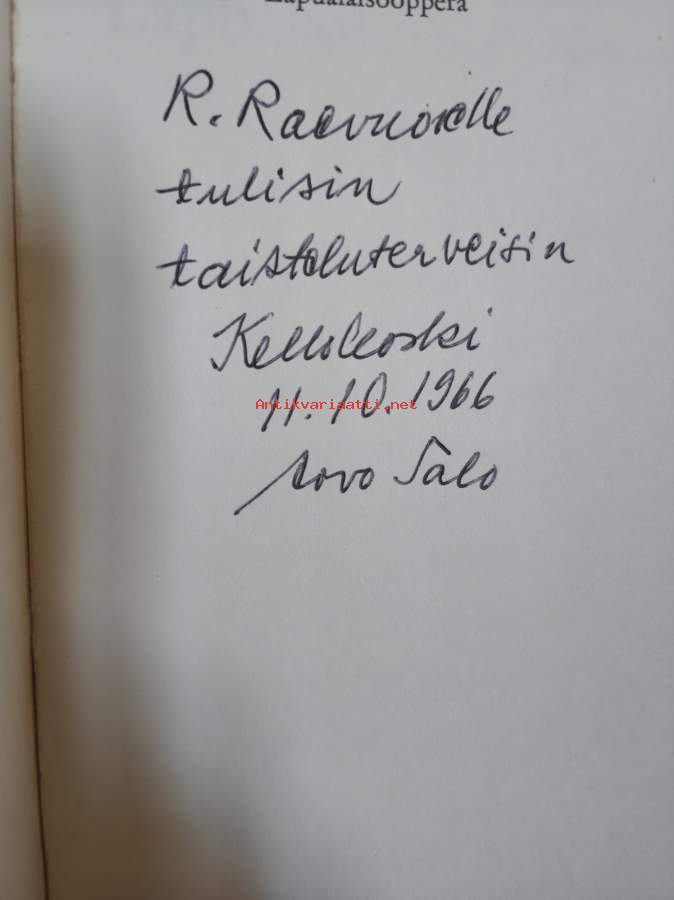 Lapualaisooppera
R. Raevuorelle
tulisin
taisteluterveisin
Kellokoski
11.10.1966
Antikvariaatti.net
Arvo Salo